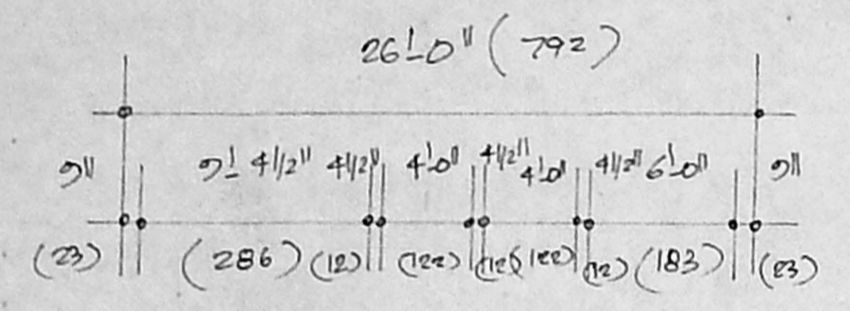 26'-0" (792)
9" 9'-4 1/2" 4 1/2" 4'-0" 4 1/2" 4'-0" 4 1/2" 6'-0" 9"
(23) (286) (12) (122) (12) (122) (12) (183) (23)